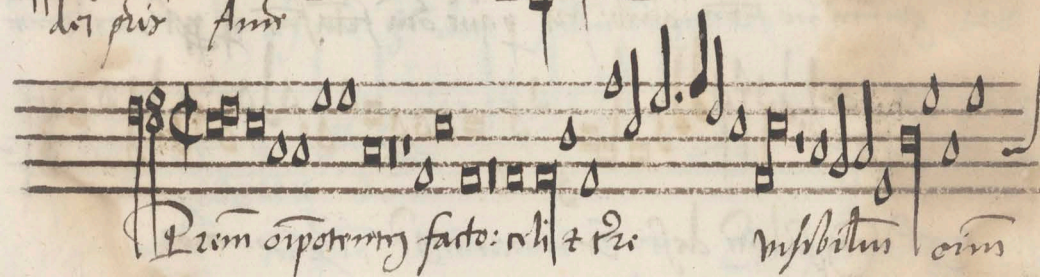 dei pris Ame
Prem oipotentez facto: celi & tre visibiliu oim